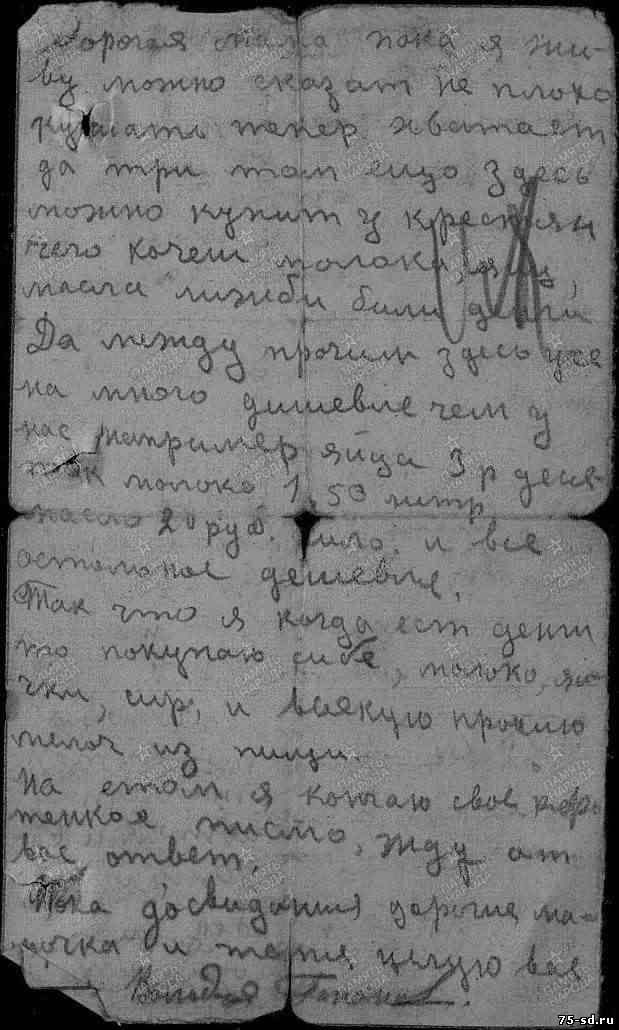 Дорогая мама пока я жи-
ву можно сказат не плохо
кушать тепер хватает
да три том ещо здесь
можно купит у крестян
чего хочеш молока, яиц,
масла лижби были денги
Да между прочим здесь уже
на много дишевле чем у
нас например яйца 3 р десят-
ток молоко 1.50 литр
масло 20 руб. кило. и все
остольное дешевле.
Так что я когда ест денги
то покупаю сибе, молоко, яи-
чки, сир, и всякую прочию
мелоч из пищи.
На етом я кончаю свое коро-
тенкое писмо, жду от
вас ответ.
Пока досвидания дорогие ма-
мочка и тетя целую вас
Володя
75-sd.ru